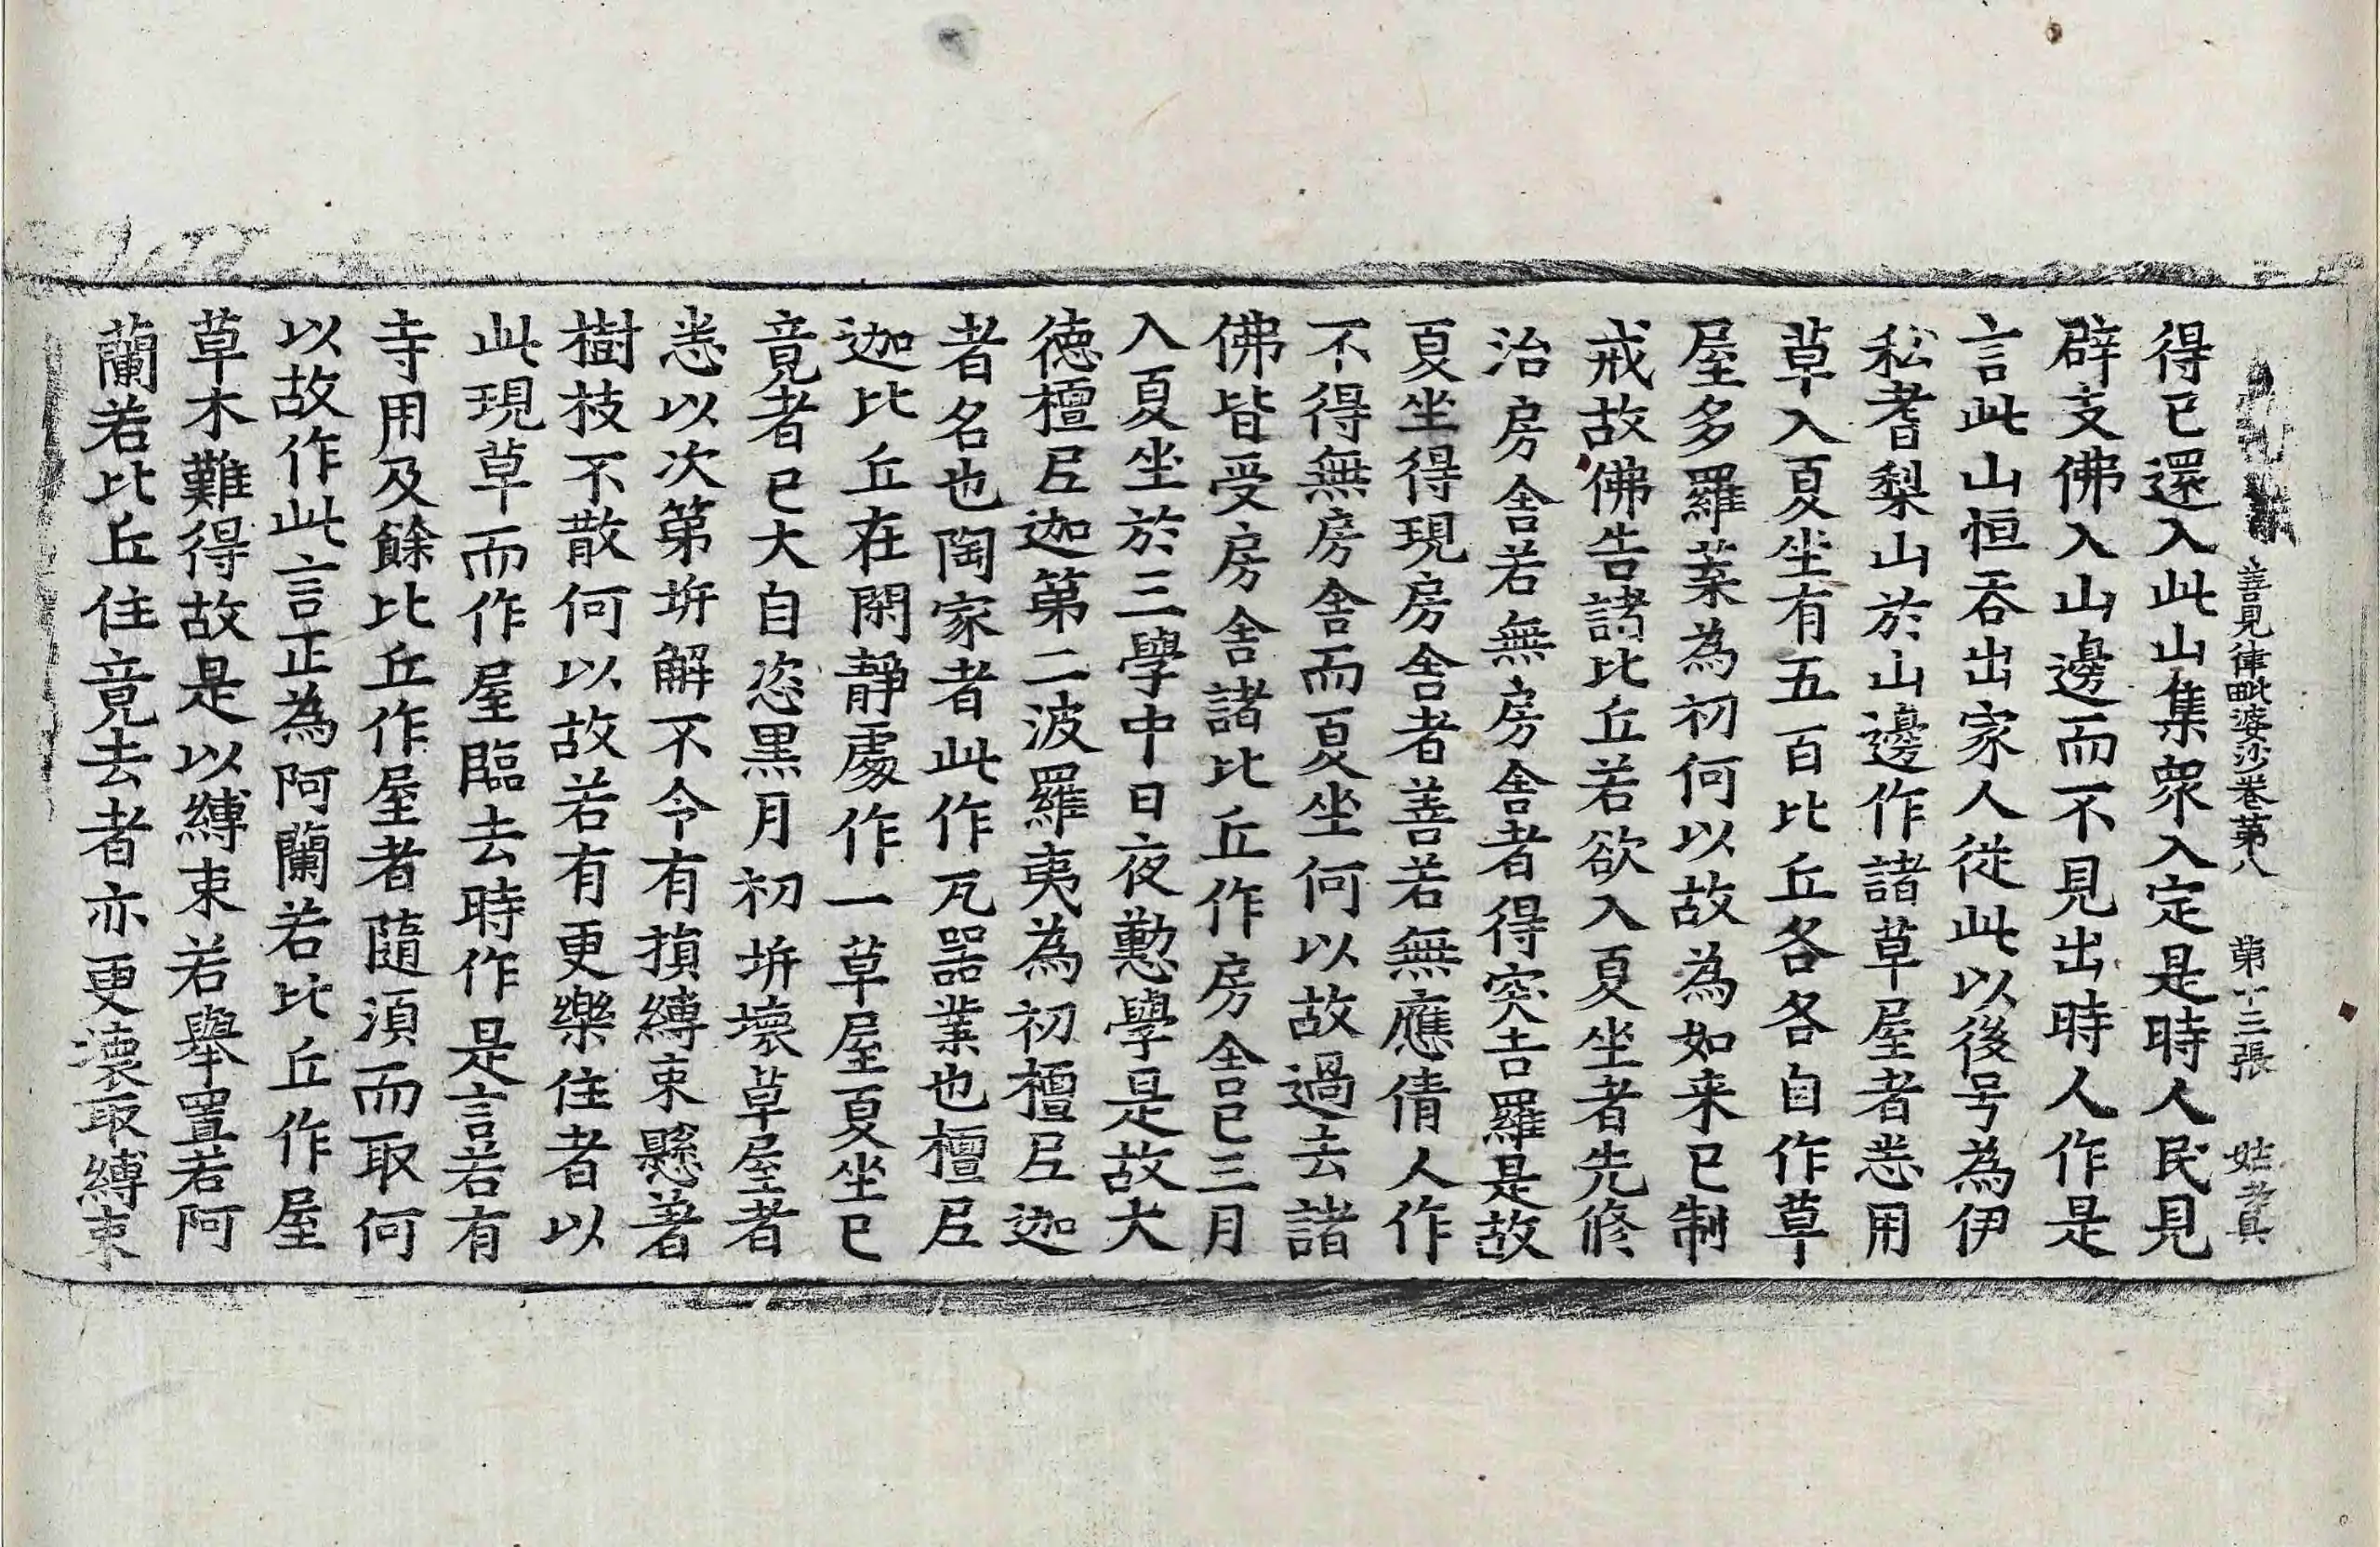 善見律毗婆沙卷第八 第十三張 姑
得已還入此山集衆入定是時人民見
辟支佛入山邊而不見出時人作是
言此山恒吞出家人從此以後号為伊
私耆梨山於山邊作諸草屋者悉用
草入夏坐有五百比丘各各自作草
屋多羅葉為初何以故為如来已制
戒故佛告諸比丘若欲入夏坐者先修
治房舍若無房舍者得突吉羅是故
夏坐得現房舍者善若無應倩人作
不得無房舍而夏坐何以故過去諸
佛皆受房舍諸比丘作房舍已三月
入夏坐於三學中日夜懃學是故大
徳檀尼迦第二波羅夷為初檀尼迦
者名也陶家者此作瓦器業也檀尼
迦比丘在閑靜處作一草屋夏坐已
竟者已大自恣黒月初坼壞草屋者
悉以次第坼解不令有損縛束懸著
樹枝不散何以故若有更樂住者以
此現草而作屋臨去時作是言若有
寺用及餘比丘作屋者隨湏而取何
以故作此言正為阿蘭若比丘作屋
草木難得故是以縛束若舉置若阿
蘭若比丘住竟去者亦更壞取縛束